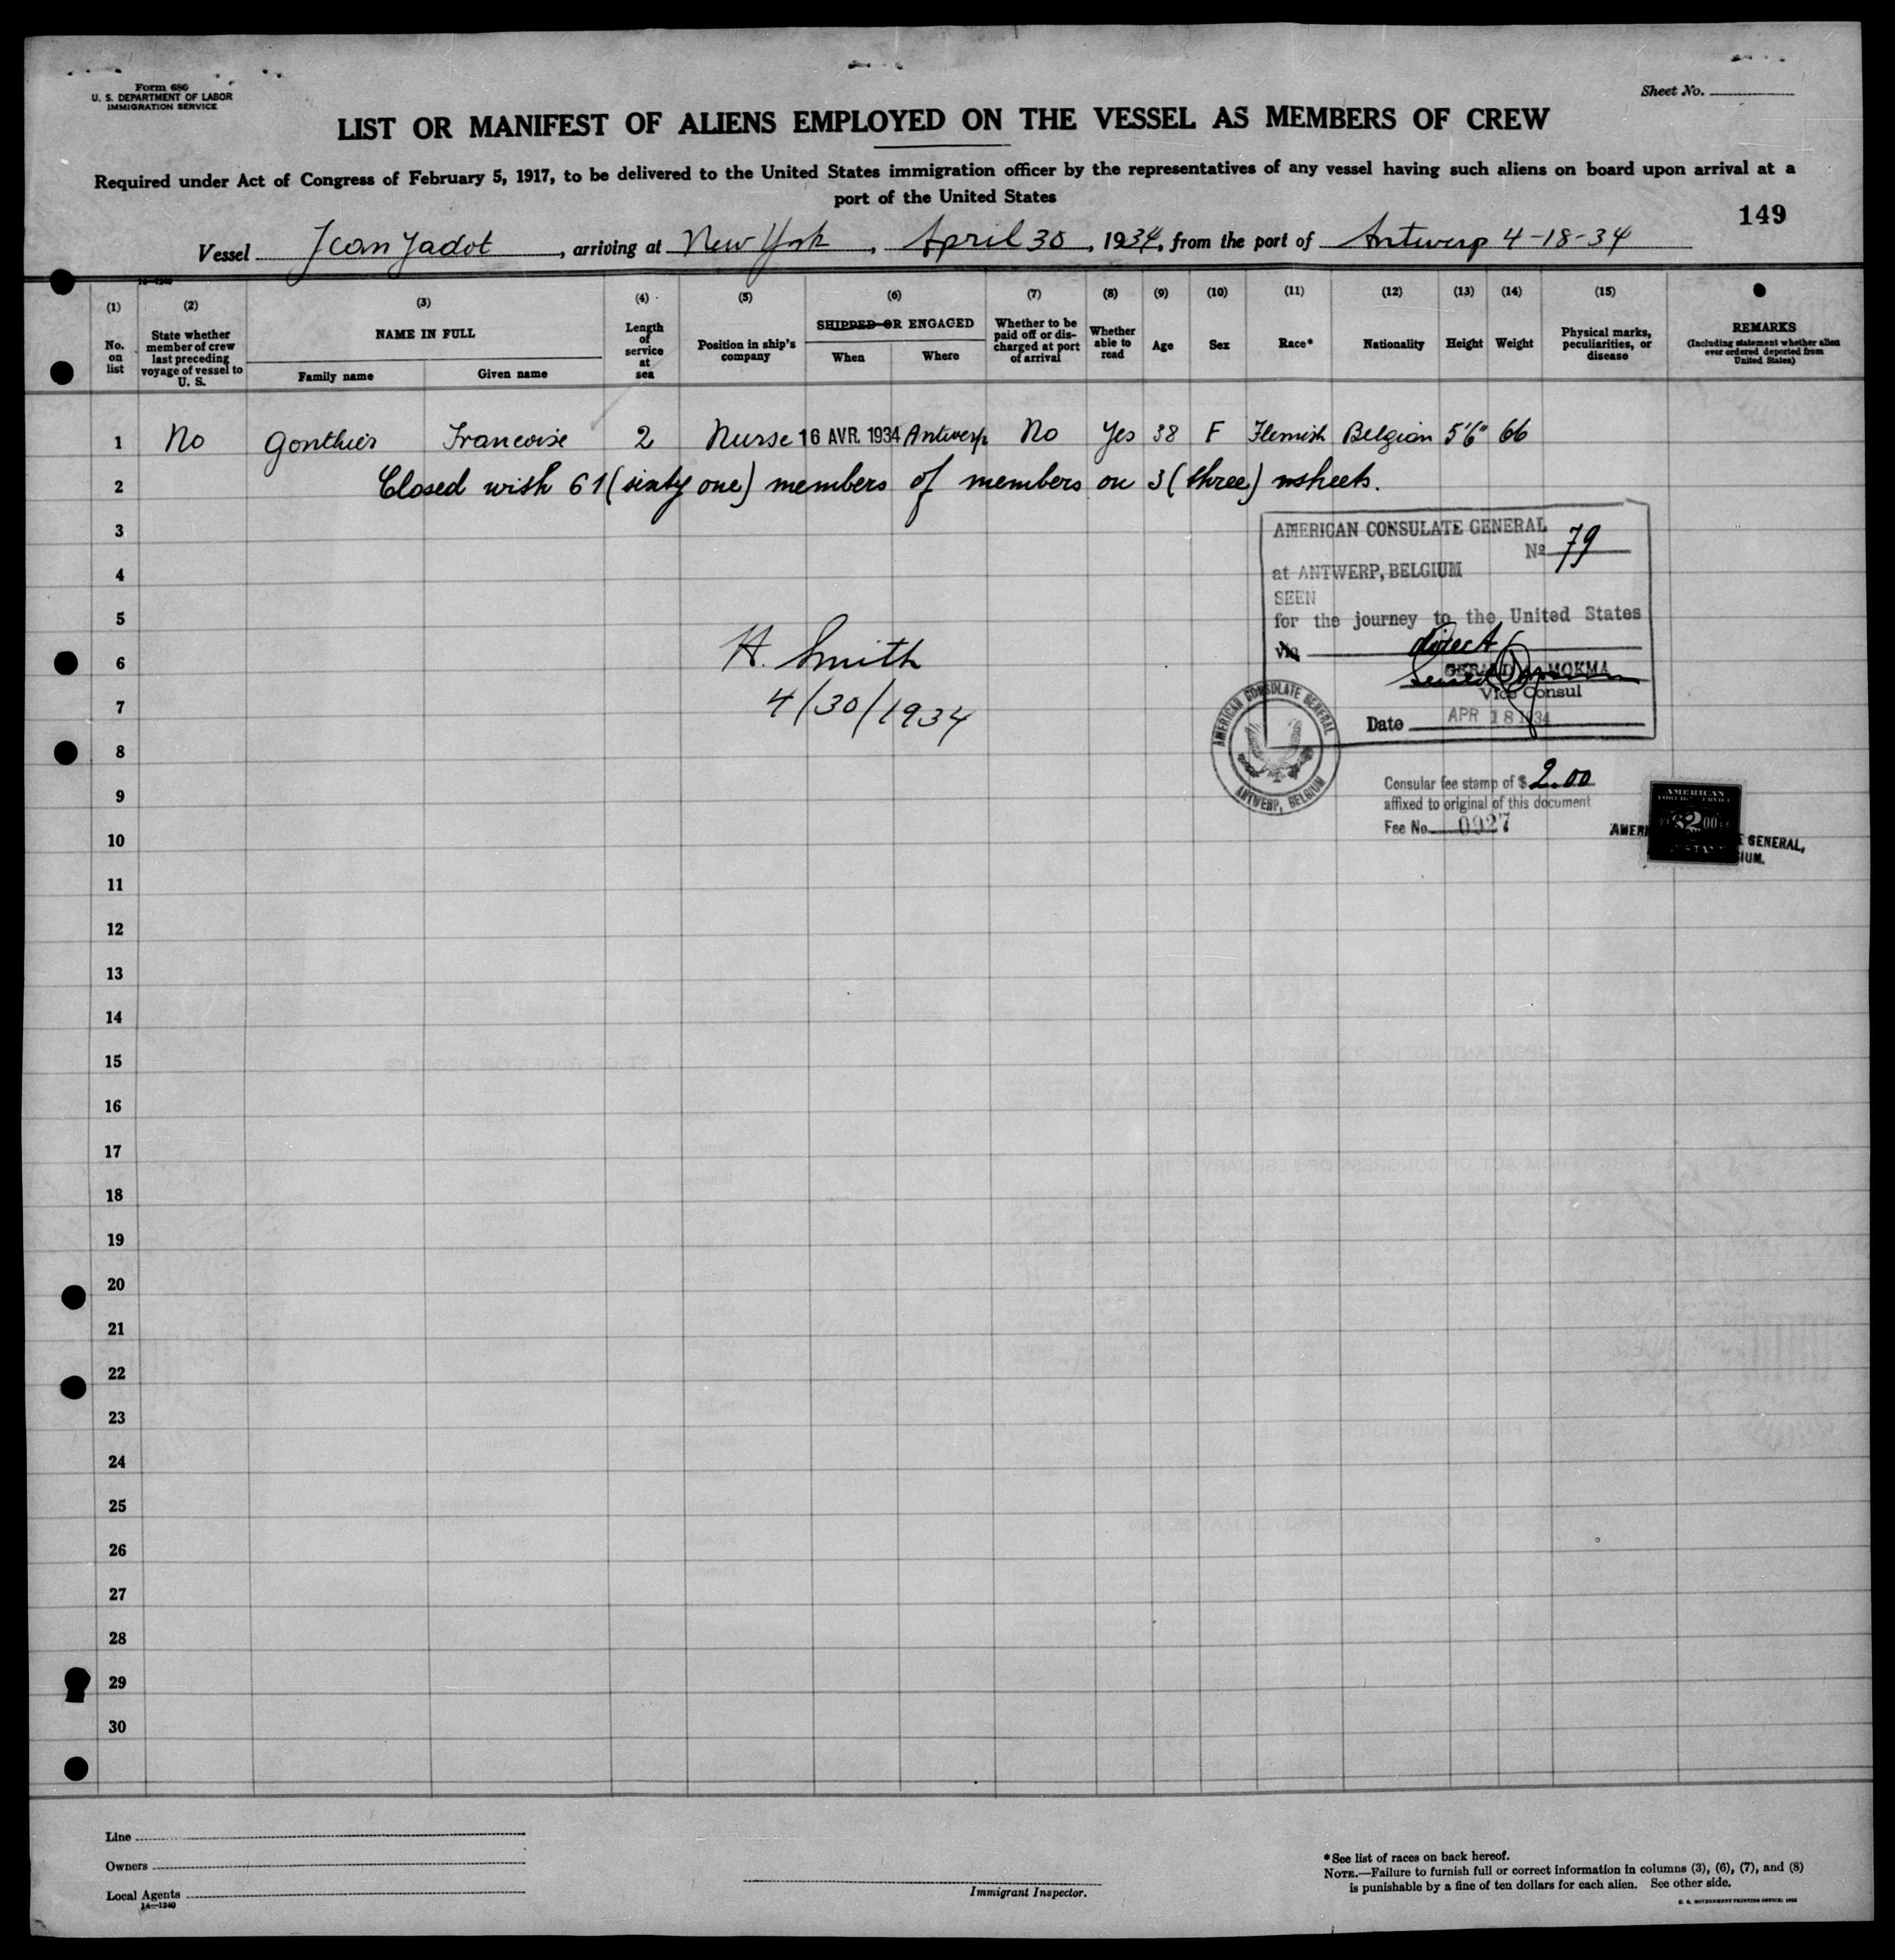 Form 680
U. S. DEPARTMENT OF LABOR
IMMIGRATION SERVICE
Sheet No.
LIST OR MANIFEST OF ALIENS EMPLOYED ON THE VESSEL AS MEMBERS OF CREW
Required under Act of Congress of February 5, 1917, to be delivered to the United States immigration officer by the representatives of any vessel having such aliens on board upon arrival at a
port of the United States
149
Vessel Jean Jadot, arriving at New York, April 30, 1934, from the port of Antwerp 4-18-34
(1) (2) (3) (4) (5) (6) (7) (8) (9) (10) (11) (12) (13) (14) (15)
No. on list
State whether member of crew last preceding voyage of vessel to U. S.
NAME IN FULL
Family name
Given name
Length of service at sea
Position in ship's company
SHIPPED OR ENGAGED
When
Where
Whether to be paid off or discharged at port of arrival
Whether able to read
Age
Sex
Race*
Nationality
Height
Weight
Physical marks, peculiarities, or disease
REMARKS
(Including statement whether alien ever ordered deported from United States)
1 No Gonthier Francoise 2 Nurse 16 AVR. 1934 Antwerp No Yes 38 F Flemish Belgian 5'6" 66
2 Closed wish 61 (sixty one) members of members on 3 (three) sheets.
3
4
5
6
7
8
9
10
11
12
13
14
15
16
17
18
19
20
21
22
23
24
25
26
27
28
29
30
AMERICAN CONSULATE GENERAL
No 79
at ANTWERP, BELGIUM
SEEN
for the journey to the United States
via direct
GERALD A. MOKMA
Vice Consul
Date APR 18 1934
H. Smith
4/30/1934
AMERICAN CONSULATE GENERAL
ANTWERP, BELGIUM
Consular fee stamp of $ 2.00
affixed to original of this document
Fee No. 0927
AMERICAN
FOREIGN SERVICE
$2.00
GENERAL,
Line
Owners
Local Agents
14—1240
Immigrant Inspector.
*See list of races on back hereof.
NOTE.—Failure to furnish full or correct information in columns (3), (6), (7), and (8)
is punishable by a fine of ten dollars for each alien. See other side.